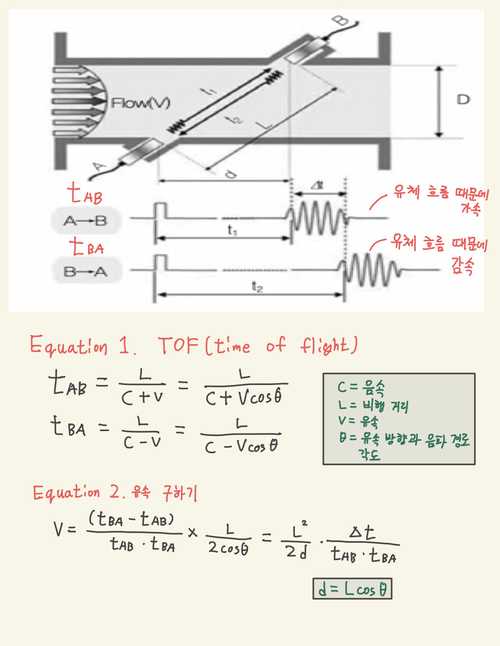 B
t₁
Flow(V)
t₂
L
D
A
d
t_AB
Δt
유체 흐름 때문에
가속
A→B
t₁
t_BA
유체 흐름 때문에
감속
B→A
t₂
Equation 1. TOF (time of flight)
t_AB = L/(C+V) = L/(C+Vcosθ)
t_BA = L/(C-V) = L/(C-Vcosθ)
C = 음속
L = 비행 거리
V = 유속
θ = 유속 방향과 음파 경로
각도
Equation 2. 유속 구하기
V = (t_BA - t_AB)/(t_AB · t_BA) × L/(2cosθ) = L²/2d · Δt/(t_AB · t_BA)
d = L cosθ